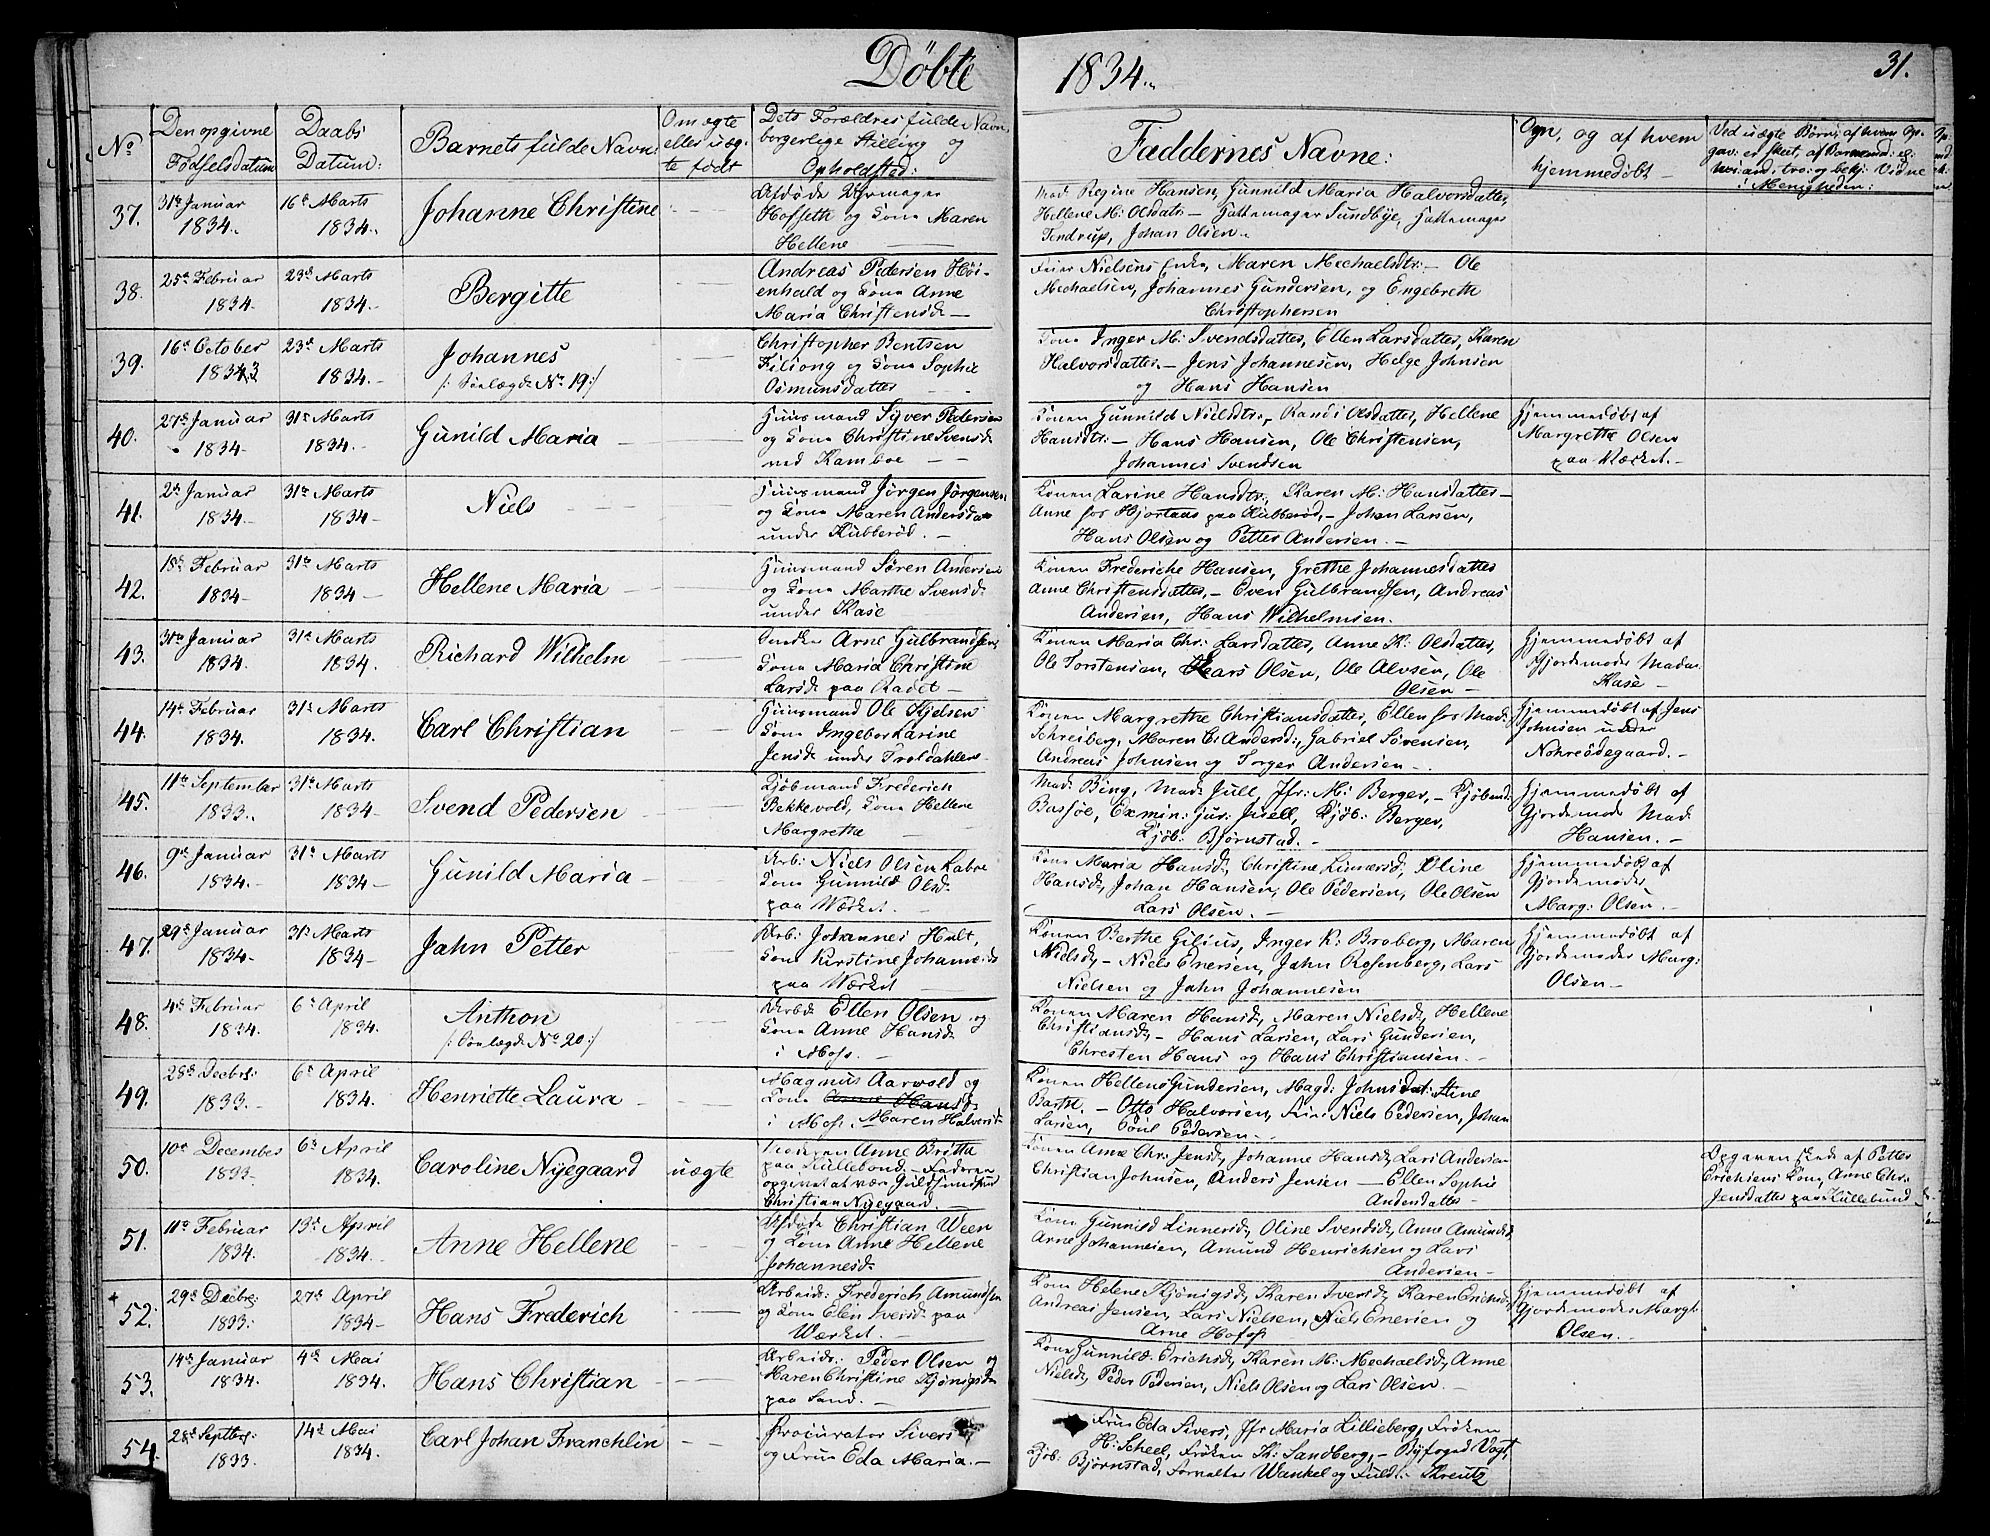 Döbte 1834. 31.
No
Den opgivne Fødselsdatum
Daabs Datum:
Barnets fulde Navn:
Om ægte eller uægte født
Dets Forældres fulde Navn, borgerlige Stilling og Opholdsted:
Faddernes Navne:
Ogn, og af hvem hjemmedøbt
37. 31te Januar 1834. 16d Marts 1834. Johanne Christine
Afdøde Uhrmager Hofseth og Kone Maren Hellene
Mad. Regine Hansen, Gunnild Maria Halvorsdatter,
Hellene M: Olsdatr - Hattemager Sundbye, Hattemager
Tendrup, Johan Olsen.
38. 25d Februar 1834. 23d Marts 1834. Bergitte
Andreas Pedersen Höienhald og Kone Anne Maria Christensd.
Feier Nielsens Enke, Maren Mechaelsdtr: - Ole
Mechaelsen, Johannes Gundersen, og Engebreth
Christophersen
39. 16d October 1833 23d Marts 1834. Johannes
Christopher Bentsen og Kone Sophie Osmunsdatter
Kone Inger M: Svendsdatter, Ellen Larsdatter, Karen
Halvorsdatter - Jens Johannesen, Helge Johnsen
og Hans Hansen
40. 27d Januar 1834 31t Marts 1834. Gunild Maria
Huusmand Syver Pedersen og Kone Christine Svensd. ved Kamboe
Konen Gunnild Nielsdtr:, Randi Olsdatter, Hellene
Hansdtr: - Hans Hansen, Ole Christensen,
Johannes Svendsen
Hjemmedøbt af Margrethe Olsen paa Værket.
41. 2d Januar 1834 31te Marts 1834 Niels
Huusmand Jörgen Jörgensen og Kone Maren Andersdr under Kubberöd.
Konen Larine Hansdtr:, Karen M: Hansdatter
Anne hos Hjortaas paa Kubberöd, - Johan Larsen,
Hans Olsen og Petter Andersen.
42. 18d Februar 1834 31te Marts 1834 Hellene Maria
Huusmand Søren Andersen og Kone Marthe Svensd. under Kase
Konen Frederiche Hansen, Grethe Johannesdatter
Anne Christensdatter, - Even Gulbrandsen, Andreas
Andersen, Hans Wilhelmsen.
43. 31te Januar 1834. 31t Marts 1834. Richard Wilhelm
Arne Gulbrandsen, Kone Maria Christine Larsd. paa Rødet
Konen Maria Chr: Larsdatter, Anne K: Olsdatter,
Ole Torstensen, Lars Olsen, Ole Alvsen, Ole
Olsen
Hjemmedøbt af Gjordemoder Madm Kase
44. 14d Februar 1834. 31t Marts 1834. Carl Christian
Huusmand Ole Kjelsen Kone Ingebor Karine Jensd. under Troldahlen
Konen Margrethe Christiansdatter, Ellen hos Mad:
Schreiberg, Maren C: Andersd:, Gabriel Sørensen,
Andreas Johnsen og Torger Andersen
Hjemmedøbt af Jens Johnsen under Nohreödegaard.
45. 11te September 1833. 31d Marts 1834 Svend Pedersen
Kjøbmand Frederich Bekkevold, Kone Hellene Margrethe
Mad: Bing, Mad: Jull, Jfr: M: Berger, - Kjøbmd:
Basføe, Exmin: Jur: Juell, Kjöb: Berger,
Kjöb: Bjørnstad.
Hjemmedøbt af Gjordemoder Mad: Hansen.
46. 9de Januar 1834. 31d Marts 1834 Gunild Maria
Arb: Niels Olsen Labre Kone Gunnild Olsd. paa Wærket.
Kone Maria Hansd, Christine Linnersd, Oline
Hansd, Johan Hansen, Ole Pedersen, Ole Olsen
Lars Olsen.
Hjemmedøbt af Gjordemoder Marg: Olsen.
47. 29d Januar 1834 31d Marts 1834 Jahn Petter
Arb: Johannes Hult, Kone Kirstine Johannesd. paa Wærket
Konen Berthe Gilius, Inger K: Broberg, Maren
Nielsd, - Niels Enersen, Jahn Rosenberg, Lars
Nielsen og Jahn Johannesen
Hjemmedøbt af Gjordemoder Marg: Olsen
48. 4d Februar 1834. 6d April 1834. Anthon
Arbd: Ellen Olsen og Kone Anne Hansd. i Moss.
Konen Maren Hansd, Maren Nielsd, Hellene
Christiansd, - Hans Larsen, Lars Gundersen,
Chresten Hans og Hans Christiansen.
49. 28d Decbr: 1833. 6d April 1834. Henriette Laura
Magnus Aarvold og Kone Maren Halversd. i Moss
Konen Hellene Gundersen, Magd: Johnsdat: Stine
Barth. - Otto Halvorsen, Niels Pedersen, Johan
Larsen, Poul Pedersen.
50. 10de December 1833 6d April 1834. Caroline Nyegaard uægte
Moderen Anne Britta paa Kullebund. - Faderen opgivet at være Guldsmedsv. Christian Nyegaard.
Konen Anne Chr: Jensd, Johanne Hansd, Lars Andersen
Christian Johnsen, Anders Jensen - Ellen Sophie
Andersdatter
Opgaven skeed af Petter Erichsens Kone, Anne Chr: Jensdatter paa Kullebund
51. 11te Februar 1834. 13d April 1834. Anne Hellene
Afdøde Christian Ween og Kone Anne Hellene Johannesd.
Kone Gunnild Linnersd, Oline Svendsd, Anne Amundsd
Arne Johannesen, Amund Henrichsen og Lars
Andersen
52. 29d Decbr: 1833. 27d April 1834 Hans Frederich
Arbeidr: Frederich Amundsen og Kone Elin Iversd. paa Wærket.
Kone Helene Kjönigsd, Karen Iversd, Karen Erichsd,
Andreas Jensen, Lars Nielsen, Niels Enersen og
Arne Hofs
Hjemmedøbt af Gjordemoder Margt: Olsen.
53. 14d Januar 1834. 4de Mai 1834. Hans Christian
Arbeidr: Peder Olsen og Maren Christine Kjönigsd. paa Sand.
Kone Gunnild Erichsd, Karen M: Mechaelsd, Anne
Nielsd, Peder Pedersen, Niels Olsen og Lars Olsen.
54. 28d Septbr: 1833. 14d Mai 1834. Carl Johan Franchlin
Procurator Sivers og Frue Eda Maria.
Frue Eda Sivers, Jfr Maria Lillieberg, Frøken
H: Scheel, Frøken Th: Sandberg, - Byfoged Vogt
Kjöb: Bjørnstad, Forvalter Wankel og Fuldm: Kreutz